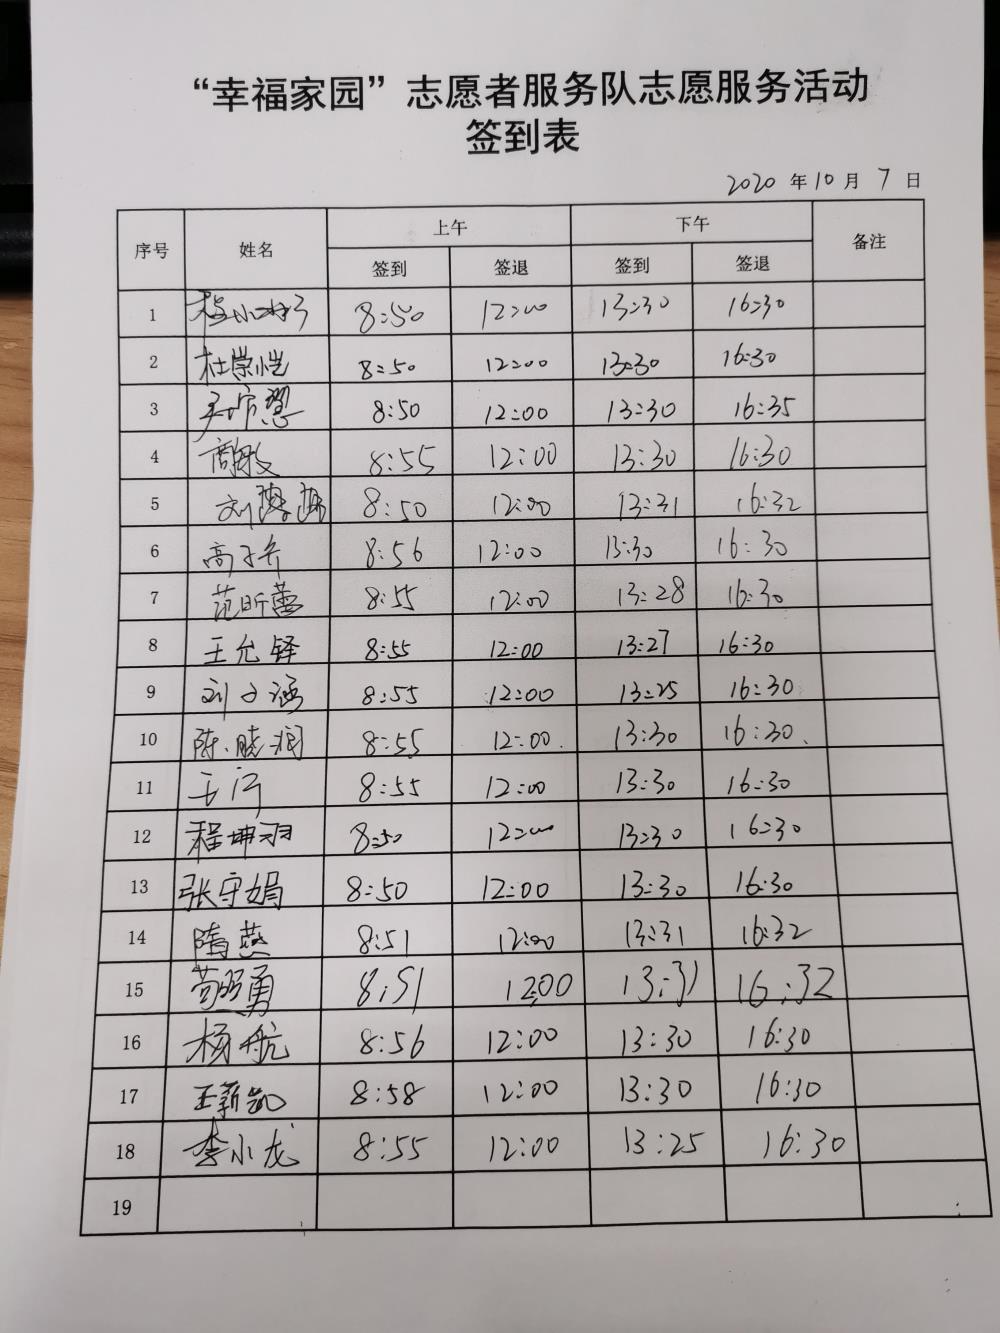 “幸福家园”志愿者服务队志愿服务活动
签到表
2020 年 10 月 7 日
序号 姓名 上午 下午 备注
签到 签退 签到 签退
1 8:50 12:00 13:30 16:30
2 杜崇恺 8:50 12:00 13:30 16:30
3 8:50 12:00 13:30 16:35
4 8:55 12:00 13:30 16:30
5 刘 8:50 12:00 13:31 16:32
6 高子乔 8:56 12:00 13:30 16:30
7 范昕蕾 8:55 12:00 13:28 16:30
8 王允铎 8:55 12:00 13:27 16:30
9 刘子涵 8:55 12:00 13:25 16:30
10 陈晓润 8:55 12:00 13:30 16:30
11 8:55 12:00 13:30 16:30
12 程坤羽 8:50 12:00 13:30 16:30
13 张守娟 8:50 12:00 13:30 16:30
14 隋燕 8:51 12:00 13:31 16:32
15 苟照勇 8:51 12:00 13:31 16:32
16 杨航 8:56 12:00 13:30 16:30
17 王新凯 8:58 12:00 13:30 16:30
18 李小龙 8:55 12:00 13:25 16:30
19